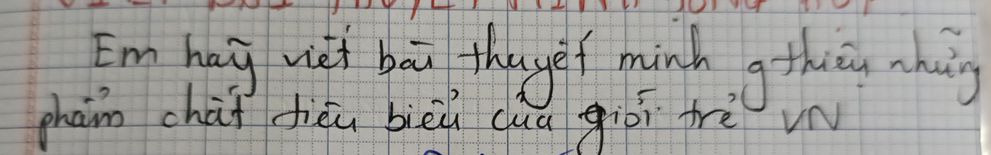 Em hãy viết bài thuyết minh gthiệu những
phẩm chất tiêu biểu của giới trẻ VN